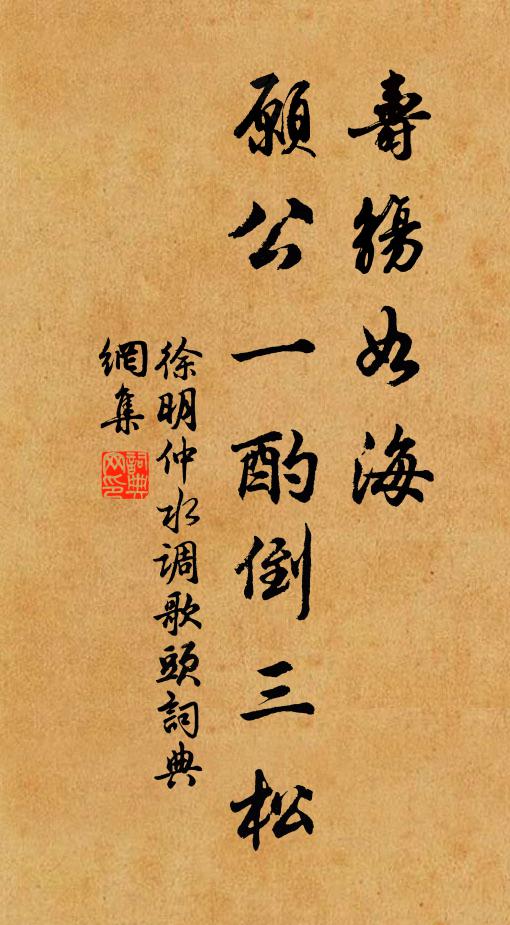 壽觴如海
願公一酌倒三松
徐明仲水调歌頭詞典
網集
詞典網印